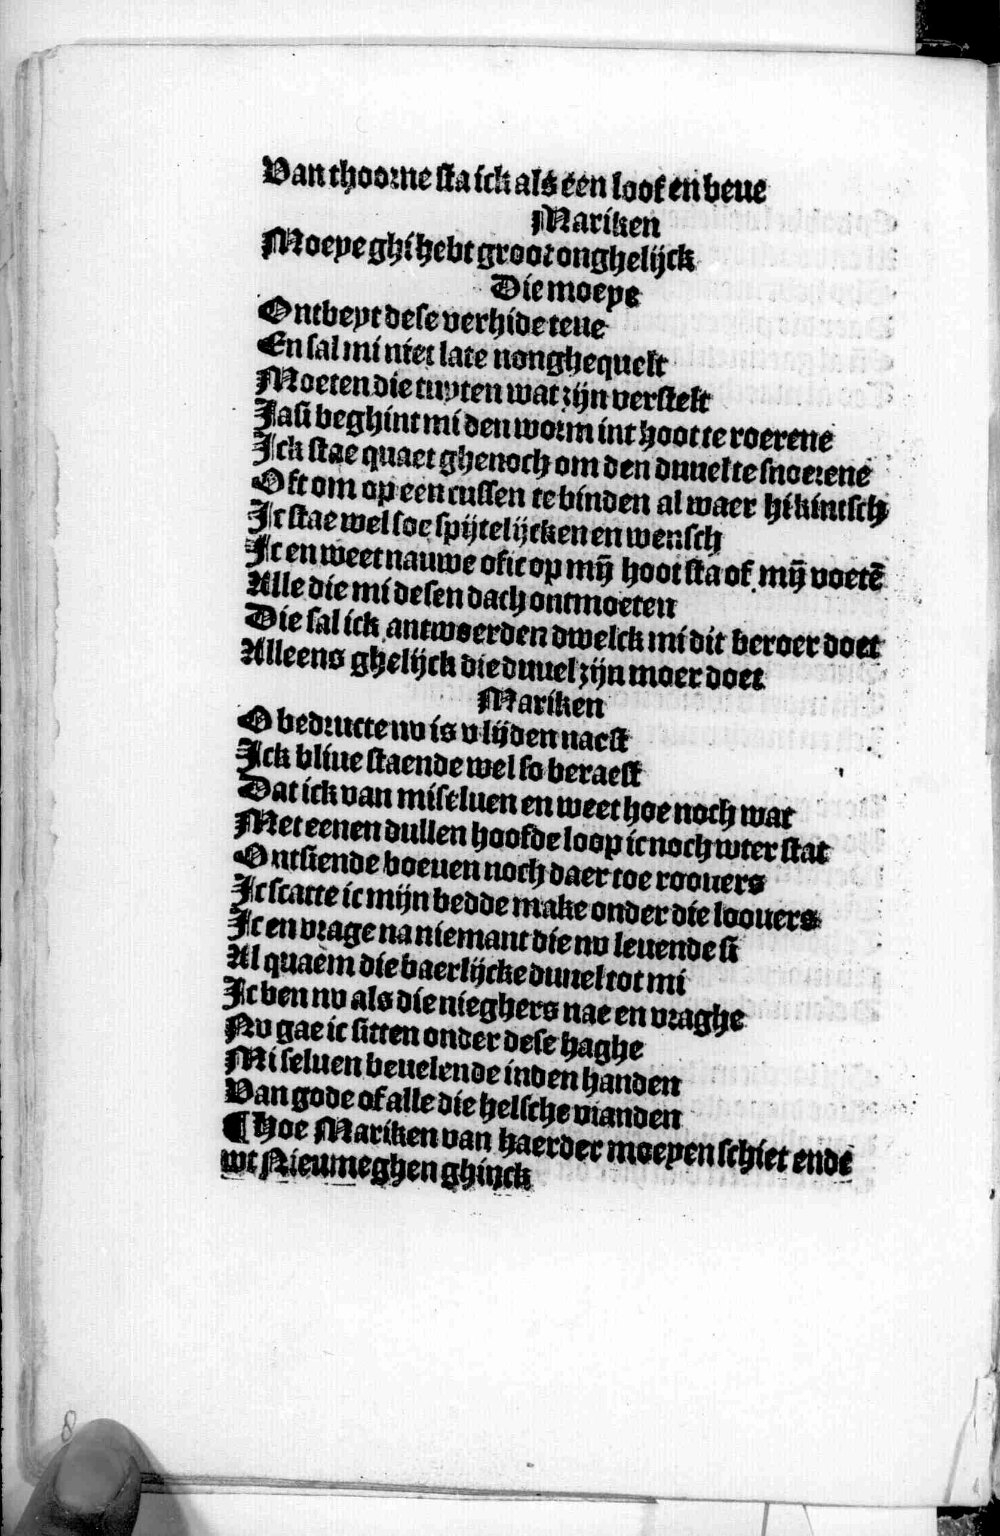 Van thoorne sta ick als een loof en beue
Mariken
Moeye ghi hebt groot onghelijck
Die moeye
Ontbeyt dese verhide teue
En sal mi niet late nonghequelt
Moeten die tuyten wat zijn verstelt
Jasi beghint mi den worm int hoot te roerene
Ick stae quaet ghenoch om den duuel te snoerene
Oft om op een cussen te binden al waer hi kintsch
Ic stae wel soe spijtelijcken en wensch
Ic en weet nauwe ofic op mij̄ hoot sta of mij̄ voetē
Alle die mi desen dach ontmoeten
Die sal ick antwoerden dwelck mi dit beroer doet
Alleens ghelijck die duuel zijn moer doet
Mariken
O bedructe nv is v lijden naest
Ick bliue staende wel so beraest
Dat ick van miseluen en weet hoe noch wat
Met eenen dullen hoofde loop ic noch wter stat
Ontsiende boeuen noch daer toe roouers
Ic scatte ic mijn bedde make onder die loouers
Ic en vrage na niemant die nv leuende si
Al quaem die baerlijcke duuel tot mi
Ic ben nv als die nieghers nae en vraghe
Nv gae ic sitten onder dese haghe
Mi seluen beuelende inden handen
Van gode of alle die helsche vianden
¶ Hoe Mariken van haerder moeyen schiet ende
wt Nieumeghen ghinck
8